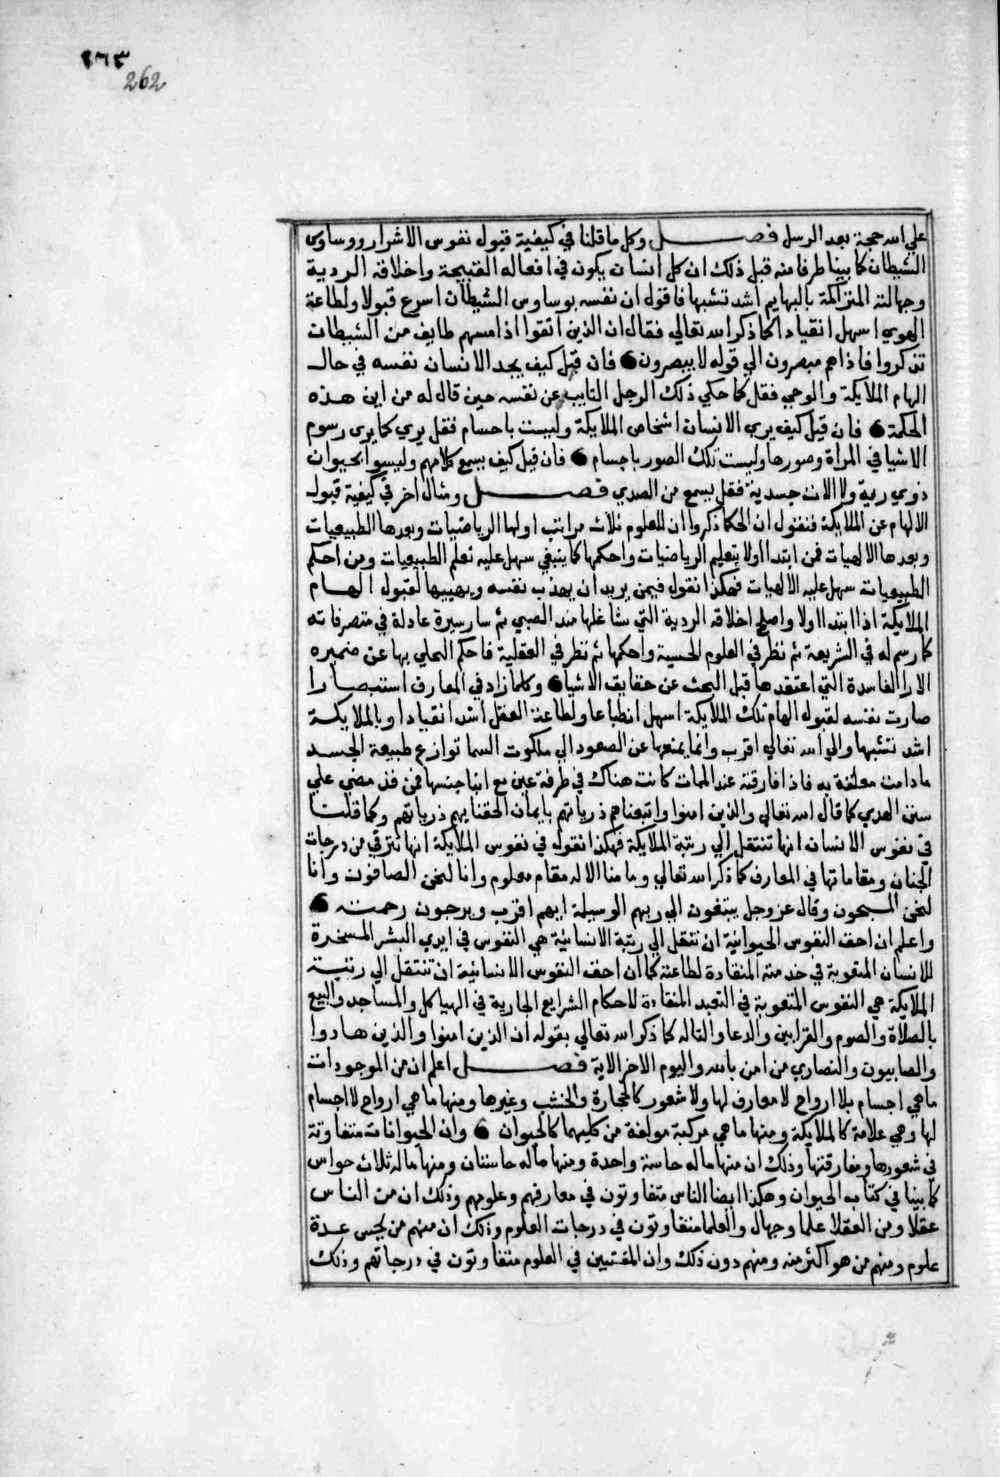 ٢٦٣
262
علي الله حجة بعد الرسل فصل وكل ما قلنا في كيفية قبول نفوس الاشرار ووساوس
الشيطان كما بينا طرفا منه قبل ذلك ان كل انسان يكون في افعاله القبيحة واخلاقه الردية
وجهالته المتراكمة بالبهايم اشد تشبها فاقول ان نفسه بوساوس الشيطان اسرع قبولا ولطاعة
الهوي اسهل انقيادا كما ذكر الله تعالي فقال ان الذين اتقوا اذا مسهم طايف من الشيطان
تذكروا فاذا هم مبصرون الي قوله لا يبصرون فان قيل كيف يجد الانسان نفسه في حال
الهام الملايكة والوحي فقل كما حكي ذلك الرجل التايب عن نفسه حين قال له من اين هذه
الحكمة فان قيل كيف يري الانسان اشخاص الملايكة وليست باجسام فقل يري كما يرى رسوم
الاشيا في المراة وصورها وليست تلك الصور باجسام فان قيل كيف يسمع كلامهم وليسوا بحيوان
ذوي رية ولا الات جسدية فقل يسمع من الصدي فصل ومثال اخر في كيفية قبول
الالهام عن الملايكة فنقول ان الحكما ذكروا ان للعلوم ثلاث مراتب اولها الرياضيات وبعدها الطبيعيات
وبعدها الالهيات فمن ابتدا اولا بتعليم الرياضيات واحكمها كما ينبغي سهل عليه تعلم الطبيعيات ومن احكم
الطبيعيات سهل عليه الالهيات فهكذا نقول فيمن يريد ان يهذب نفسه ويهييها لقبول الهام
الملايكة اذا ابتدا اولا واصلح اخلاقه الردية التي نشا عليها منذ الصبي ثم سار سيرة عادلة في متصرفاته
كما رسم له في الشريعة ثم نظر في العلوم الحسية واحكمها ثم نظر في العقلية فاحكم التحلي بها عن ضميره
الارا الفاسدة التي اعتقدها قبل البحث عن حقايق الاشيا وكلما زاد في المعارف استبصارا
صارت نفسه لقبول الهام تلك الملايكة اسهل انطباعا ولطاعة العقل اشد انقيادا وبالملايكة
اشد تشبها والي الله تعالي اقرب وانما يمنعها عن الصعود الي ملكوت السما نوازع طبيعة الجسد
ما دامت معلقة به فاذا فارقته عند الممات كانت هناك في طرفة عين مع ابنا جنسها فمن قد مضي علي
سنن الهدي كما قال الله تعالي والذين امنوا واتبعناهم ذرياتهم بايمان الحقنا بهم ذرياتهم وكما قلنا
في نفوس الانسان انها تنتقل الي رتبة الملايكة فهكذا نقول في نفوس الملايكة انها تترقي من درجات
الجنان ومقاماتها في المعارف كما ذكر الله تعالي وما منا الا له مقام معلوم وانا لنحن الصافون وانا
لنحن المسبحون وقال عز وجل يبتغون الي ربهم الوسيلة ايهم اقرب ويرجون رحمته
واعلم ان احق النفوس الحيوانية ان تنتقل الي رتبة الانسانية هي النفوس في ايدي البشر المسخرة
للانسان المتعوبة في خدمته المنقادة لطاعته كما ان احق النفوس الانسانية ان تنتقل الي رتبة
الملايكة هي النفوس المتعوبة في التعبد المنقادة لاحكام الشرايع الجارية في الهياكل والمساجد والبيع
بالصلاة والصوم والقرابين والدعا والتاله كما ذكر الله تعالي بقوله ان الذين امنوا والذين هادوا
والصابيون والنصاري من امن بالله واليوم الاخر الاية فصل اعلم ان من الموجودات
ما هي اجسام بلا ارواح لا معارف لها ولا شعور كالحجارة والخشب وغيرها ومنها ما هي ارواح لا اجسام
لها وهي علامة كالملايكة ومنها ما هي مركبة مولفة من كليهما كالحيوان وان الحيوانات متفاوتة
في شعورها ومفارقتها وذلك ان منها ما له حاسة واحدة ومنها ما له حاستان ومنها ما له ثلاث حواس
كما بينا في كتاب الحيوان وهكذا ايضا الناس متفاوتون في معارفهم وعلومهم وذلك ان من الناس
عقلا ومن العقلا علما وجهال والعلما متفاوتون في درجات العلوم وذلك ان منهم من يحسن عدة
علوم ومنهم من هو اكثر منه ومنهم دون ذلك وان المفتيين في العلوم متفاوتون في درجاتهم وذلك